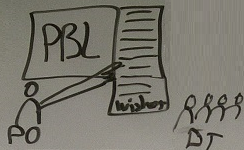 PBL
Wishes
PO
DT